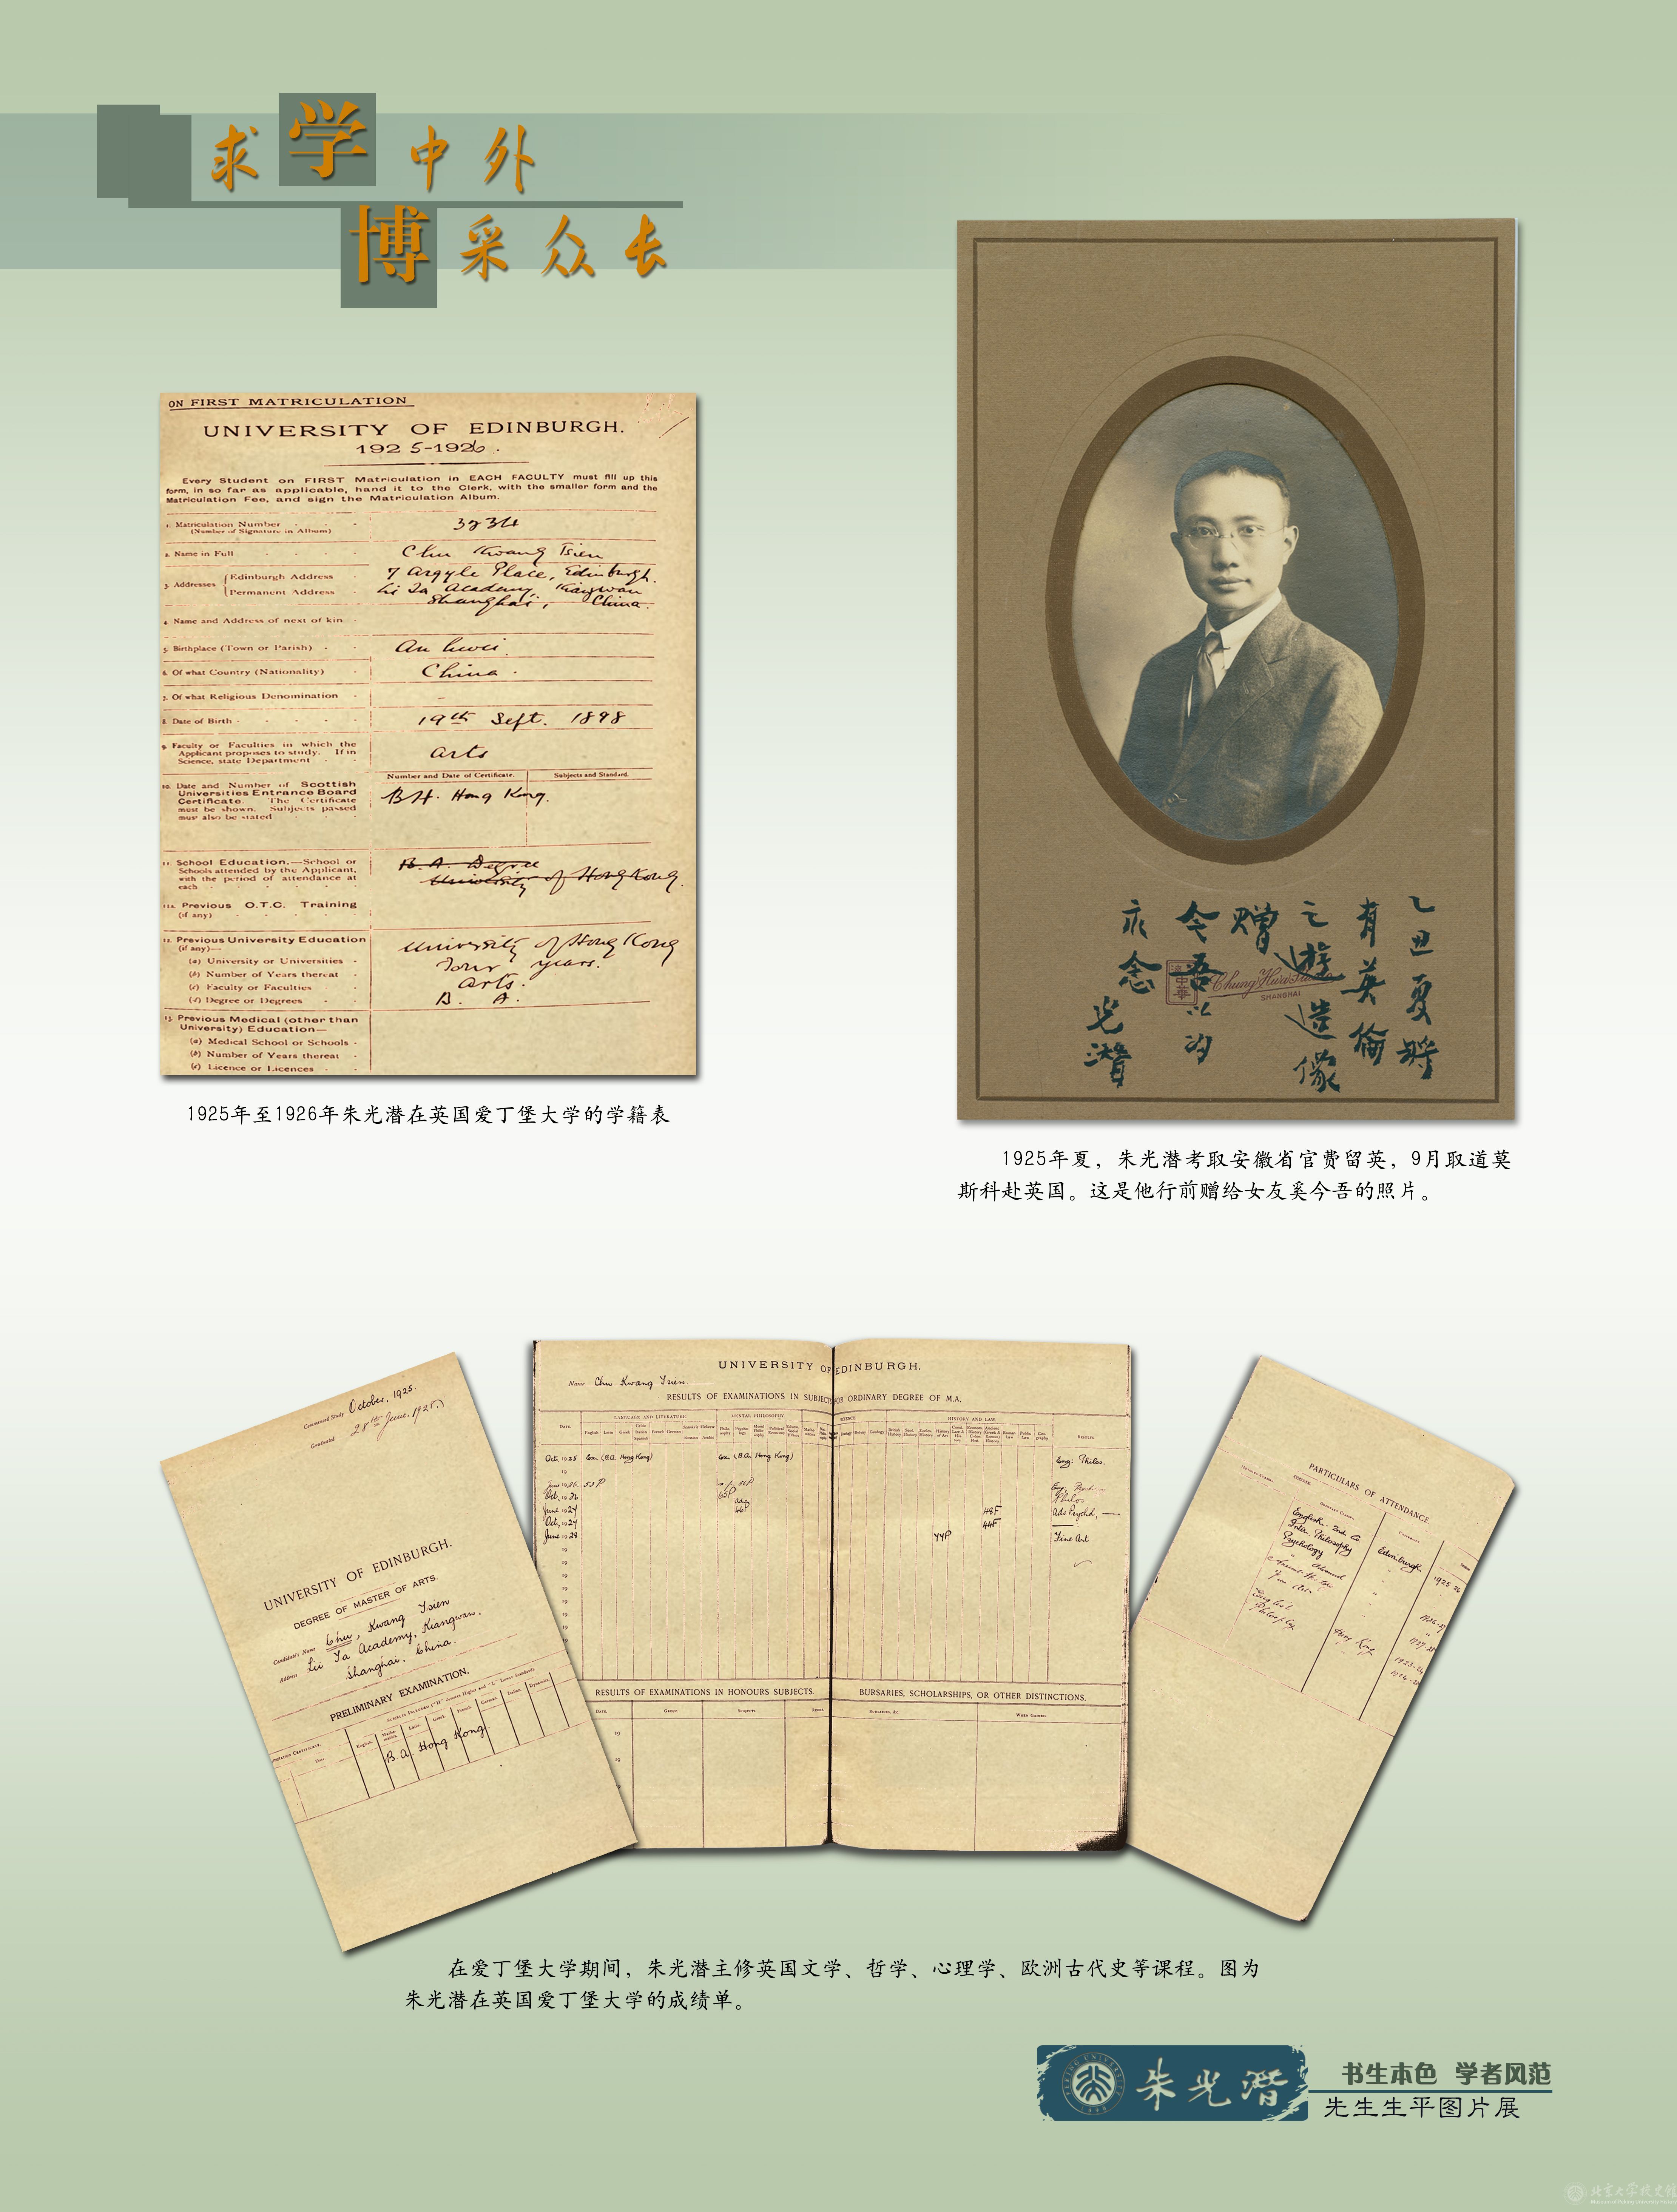 求学中外
博采众长
ON FIRST MATRICULATION
UNIVERSITY OF EDINBURGH.
1925-1926.
Every Student on FIRST Matriculation in EACH FACULTY must fill up this
form, in so far as applicable, hand it to the Clerk, with the smaller form and the
Matriculation Fee, and sign the Matriculation Album.
1. Matriculation Number
(Number of Signature in Album)
2. Name in Full Chu Kwang Tsien
3. Addresses Edinburgh Address 7 Argyle Place, Edinburgh.
Permanent Address Li Ta Academy, Kiangwan
Shanghai, China.
4. Name and Address of next of kin
5. Birthplace (Town or Parish) An hwei.
6. Of what Country (Nationality) China.
7. Of what Religious Denomination
8. Date of Birth 19th Sept. 1898
9. Faculty or Faculties in which the
Applicant proposes to study. If in
Science, state Department
Arts
Number and Date of Certificate. Subjects and Standard.
10. Date and Number of Scottish
Universities Entrance Board
Certificate. The Certificate
must be shown. Subjects passed
must also be stated
Hong Kong.
11. School Education.—School or
Schools attended by the Applicant,
with the period of attendance at
each
B. A. Degree
University of Hong Kong.
11a. Previous O.T.C. Training
(if any)
12. Previous University Education
(if any)—
(a) University or Universities University of Hong Kong
(b) Number of Years thereat Four years.
(c) Faculty or Faculties Arts.
(d) Degree or Degrees B. A.
13. Previous Medical (other than
University) Education—
(a) Medical School or Schools
(b) Number of Years thereat
(c) Licence or Licences
1925年至1926年朱光潜在英国爱丁堡大学的学籍表
乙丑夏将
有英倫
之遊造像
赠
今吾以为
永念
光潜
SHANGHAI
1925年夏，朱光潜考取安徽省官费留英，9月取道莫
斯科赴英国。这是他行前赠给女友奚今吾的照片。
Commenced Study October, 1925.
Graduated 28th June, 1928.
UNIVERSITY OF EDINBURGH.
DEGREE OF MASTER OF ARTS.
Candidate's Name Chu, Kwang Tsien
Address Li Ta Academy, Kiangwan,
Shanghai, China.
PRELIMINARY EXAMINATION.
B. A. Hong Kong.
UNIVERSITY OF EDINBURGH.
Name Chu Kwang Tsien.
RESULTS OF EXAMINATIONS IN SUBJECTS FOR ORDINARY DEGREE OF M.A.
LANGUAGE AND LITERATURE. MENTAL PHILOSOPHY. SCIENCE. HISTORY AND LAW.
Oct. 1925 Ex. (B.A. Hong Kong) Ex. (B.A. Hong Kong) Eng. Philos.
June 1928 Fine Art
RESULTS OF EXAMINATIONS IN HONOURS SUBJECTS. BURSARIES, SCHOLARSHIPS, OR OTHER DISTINCTIONS.
PARTICULARS OF ATTENDANCE
Psychology
Edinburgh
1925-26
Hong Kong
在爱丁堡大学期间，朱光潜主修英国文学、哲学、心理学、欧洲古代史等课程。图为
朱光潜在英国爱丁堡大学的成绩单。
朱光潜
书生本色 学者风范
先生生平图片展
北京大学校史馆